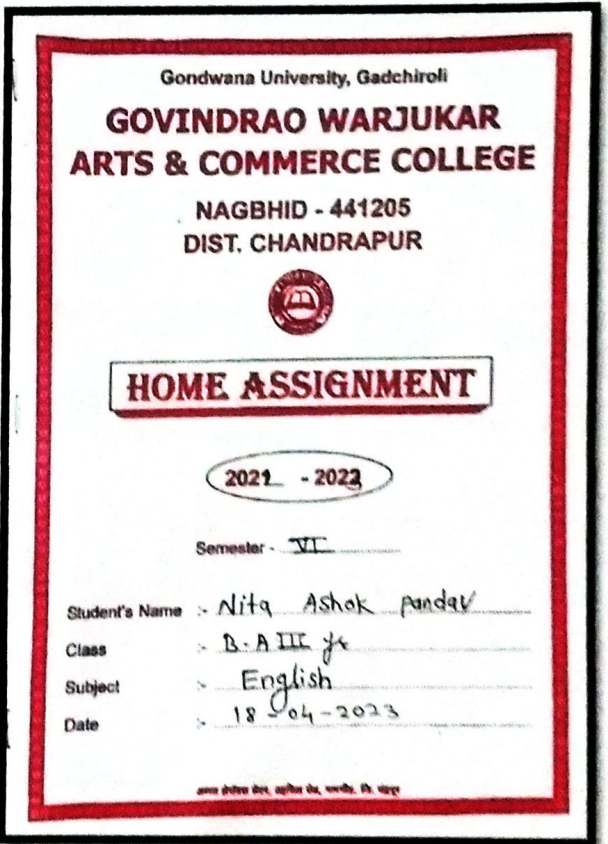 Gondwana University, Gadchiroli
GOVINDRAO WARJUKAR
ARTS & COMMERCE COLLEGE
NAGBHID - 441205
DIST. CHANDRAPUR
HOME ASSIGNMENT
2022 - 2023
Semester - VI
Student's Name :- Nita Ashok Pandav
Class :- B.A III yr
Subject :- English
Date :- 18-04-2023